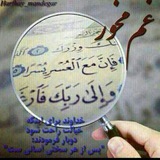 Harfhay_mandegar
غم مخور
فَإِنَّ مَعَ الْعُسْرِ يُسْرًا
وَإِلَىٰ رَبِّكَ فَارْغَ
خداوند برای اینکه
خیالت راحت شود
دوبار فرموده:
"پس از هر سختی آسانی ست"